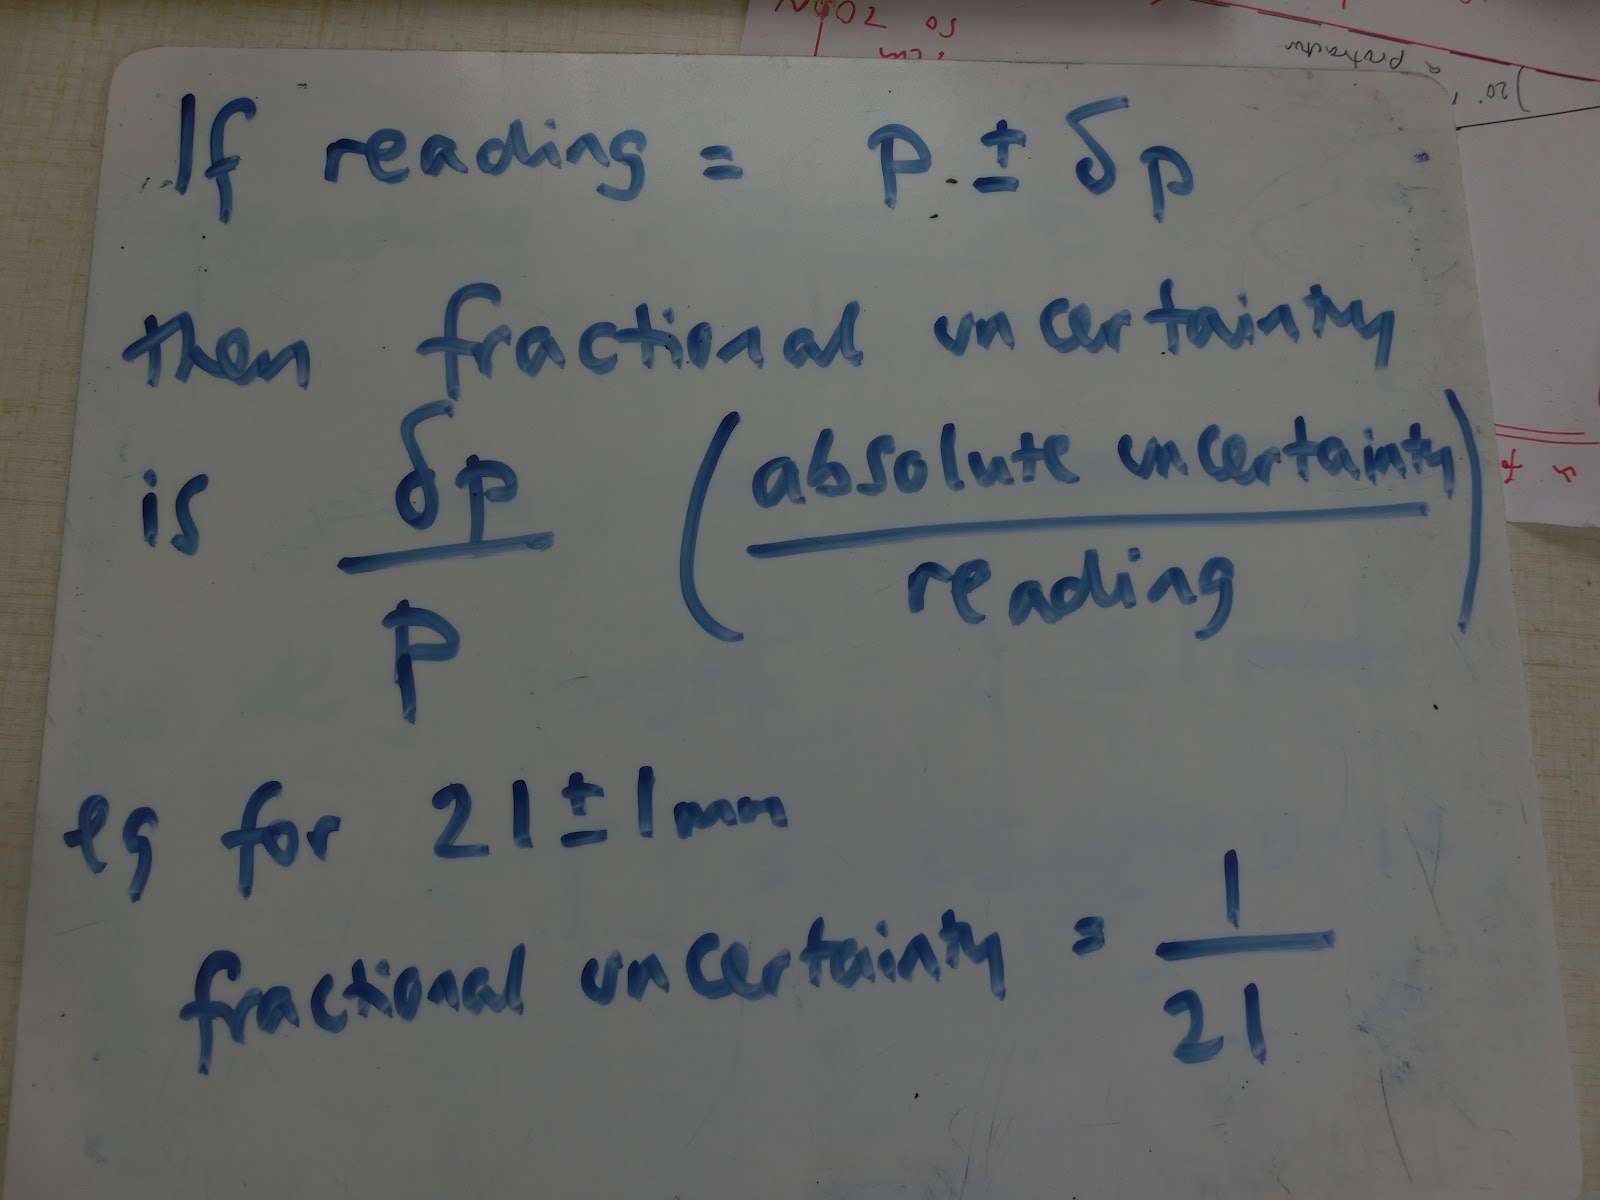 If reading = p ± δp
then fractional uncertainty
is δp/p (absolute uncertainty/reading)
eg for 21 ± 1mm
fractional uncertainty = 1/21
so 20
cm
a protractor
20°